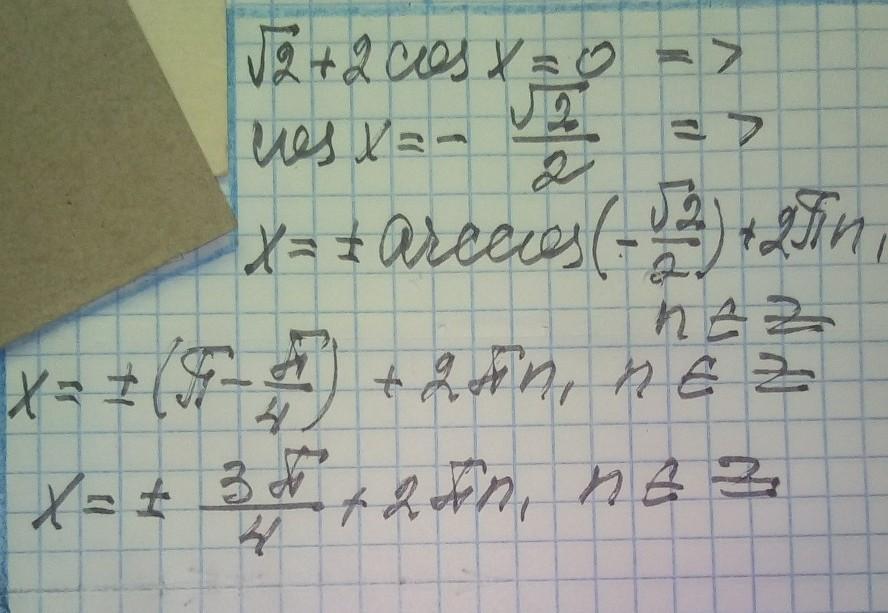 √2 + 2 cos x = 0 =>
cos x = - √2/2 =>
x = ± arccos(-√2/2) + 2πn,
n ∈ Z
x = ±(π - π/4) + 2πn, n ∈ Z
x = ± 3π/4 + 2πn, n ∈ Z